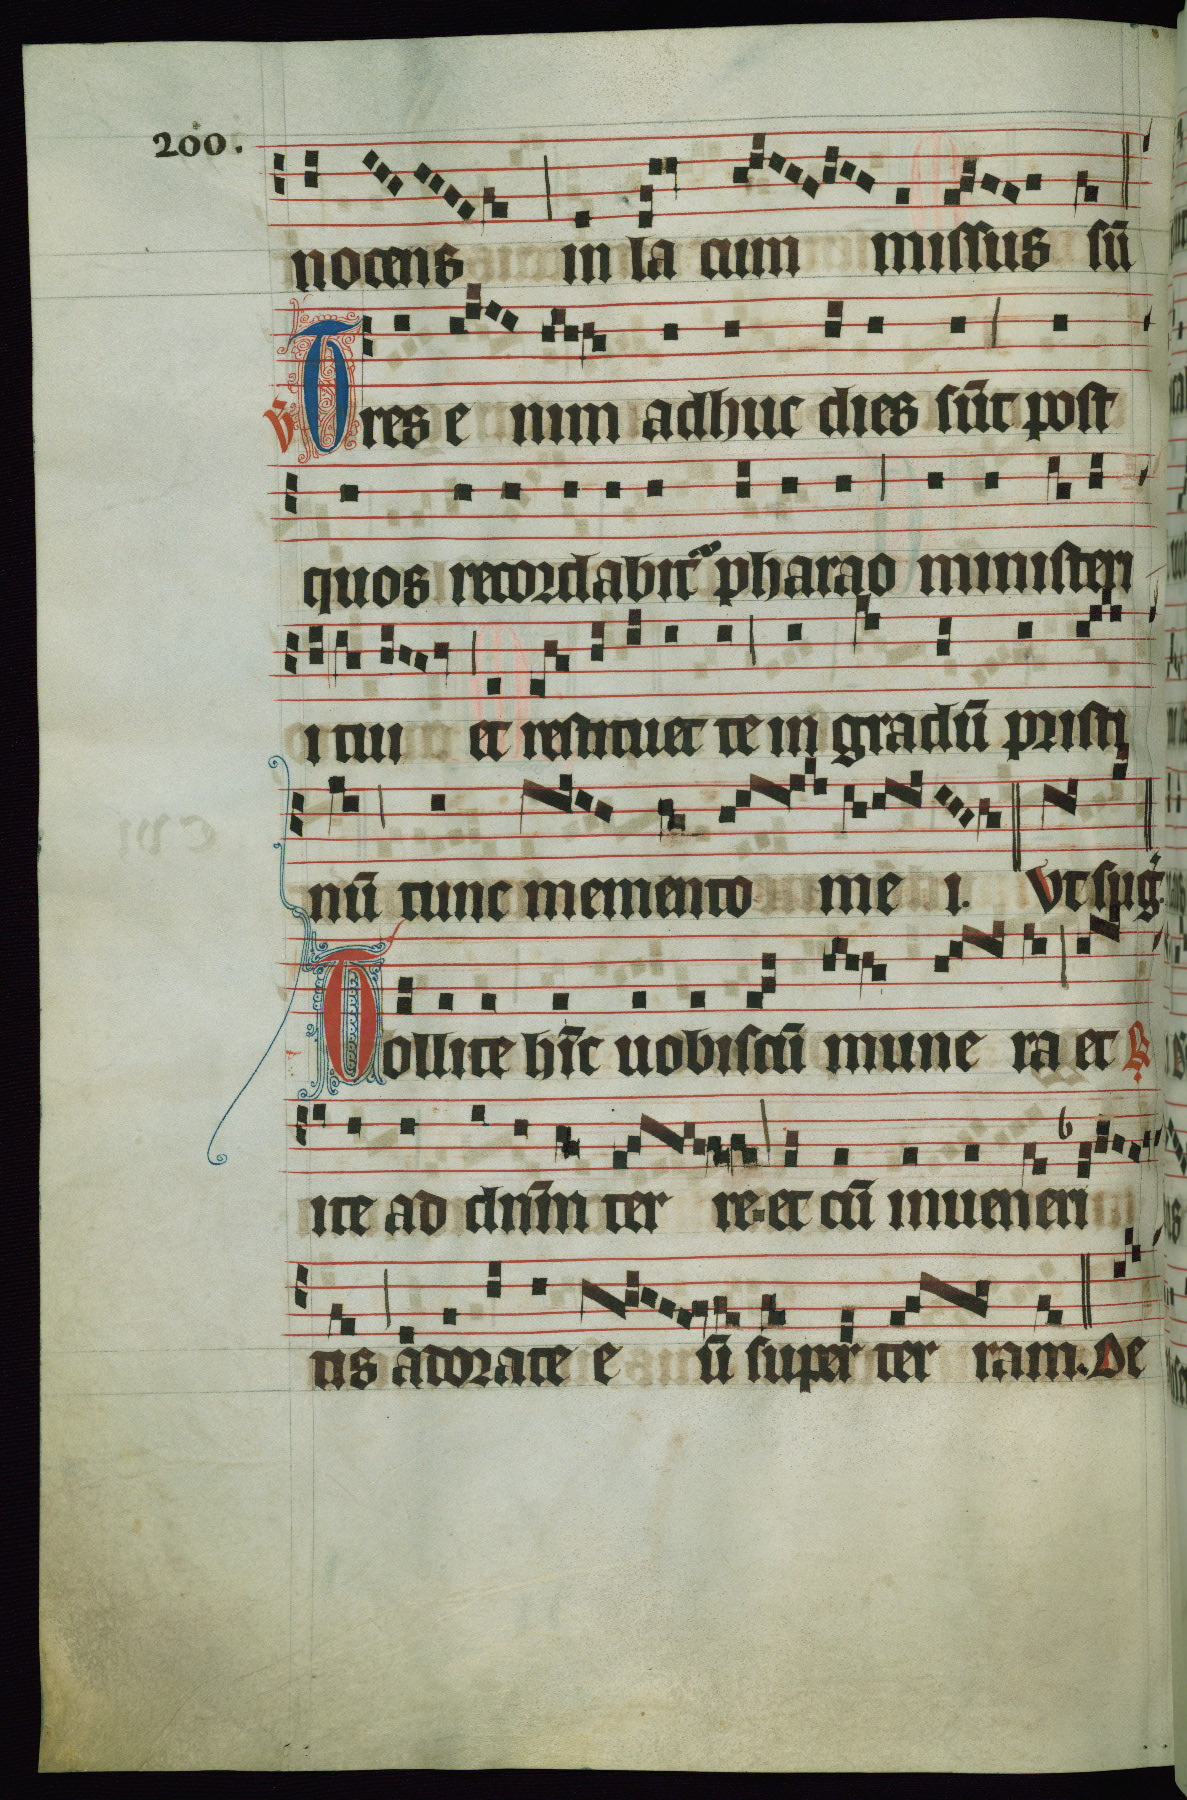 200.
nocens in la cum missus sū
V Tres e nim adhuc dies sūt post
quos recordabit̄ pharao ministeri
i tui et restituet te in gradū pristi
nū tunc memento me i. Vt suḡ.
Tollite hīc uobiscū mune ra et ℟
ite ad dn̄m ter re. et cū inueneri
tis adorate e ū super ter ram. De